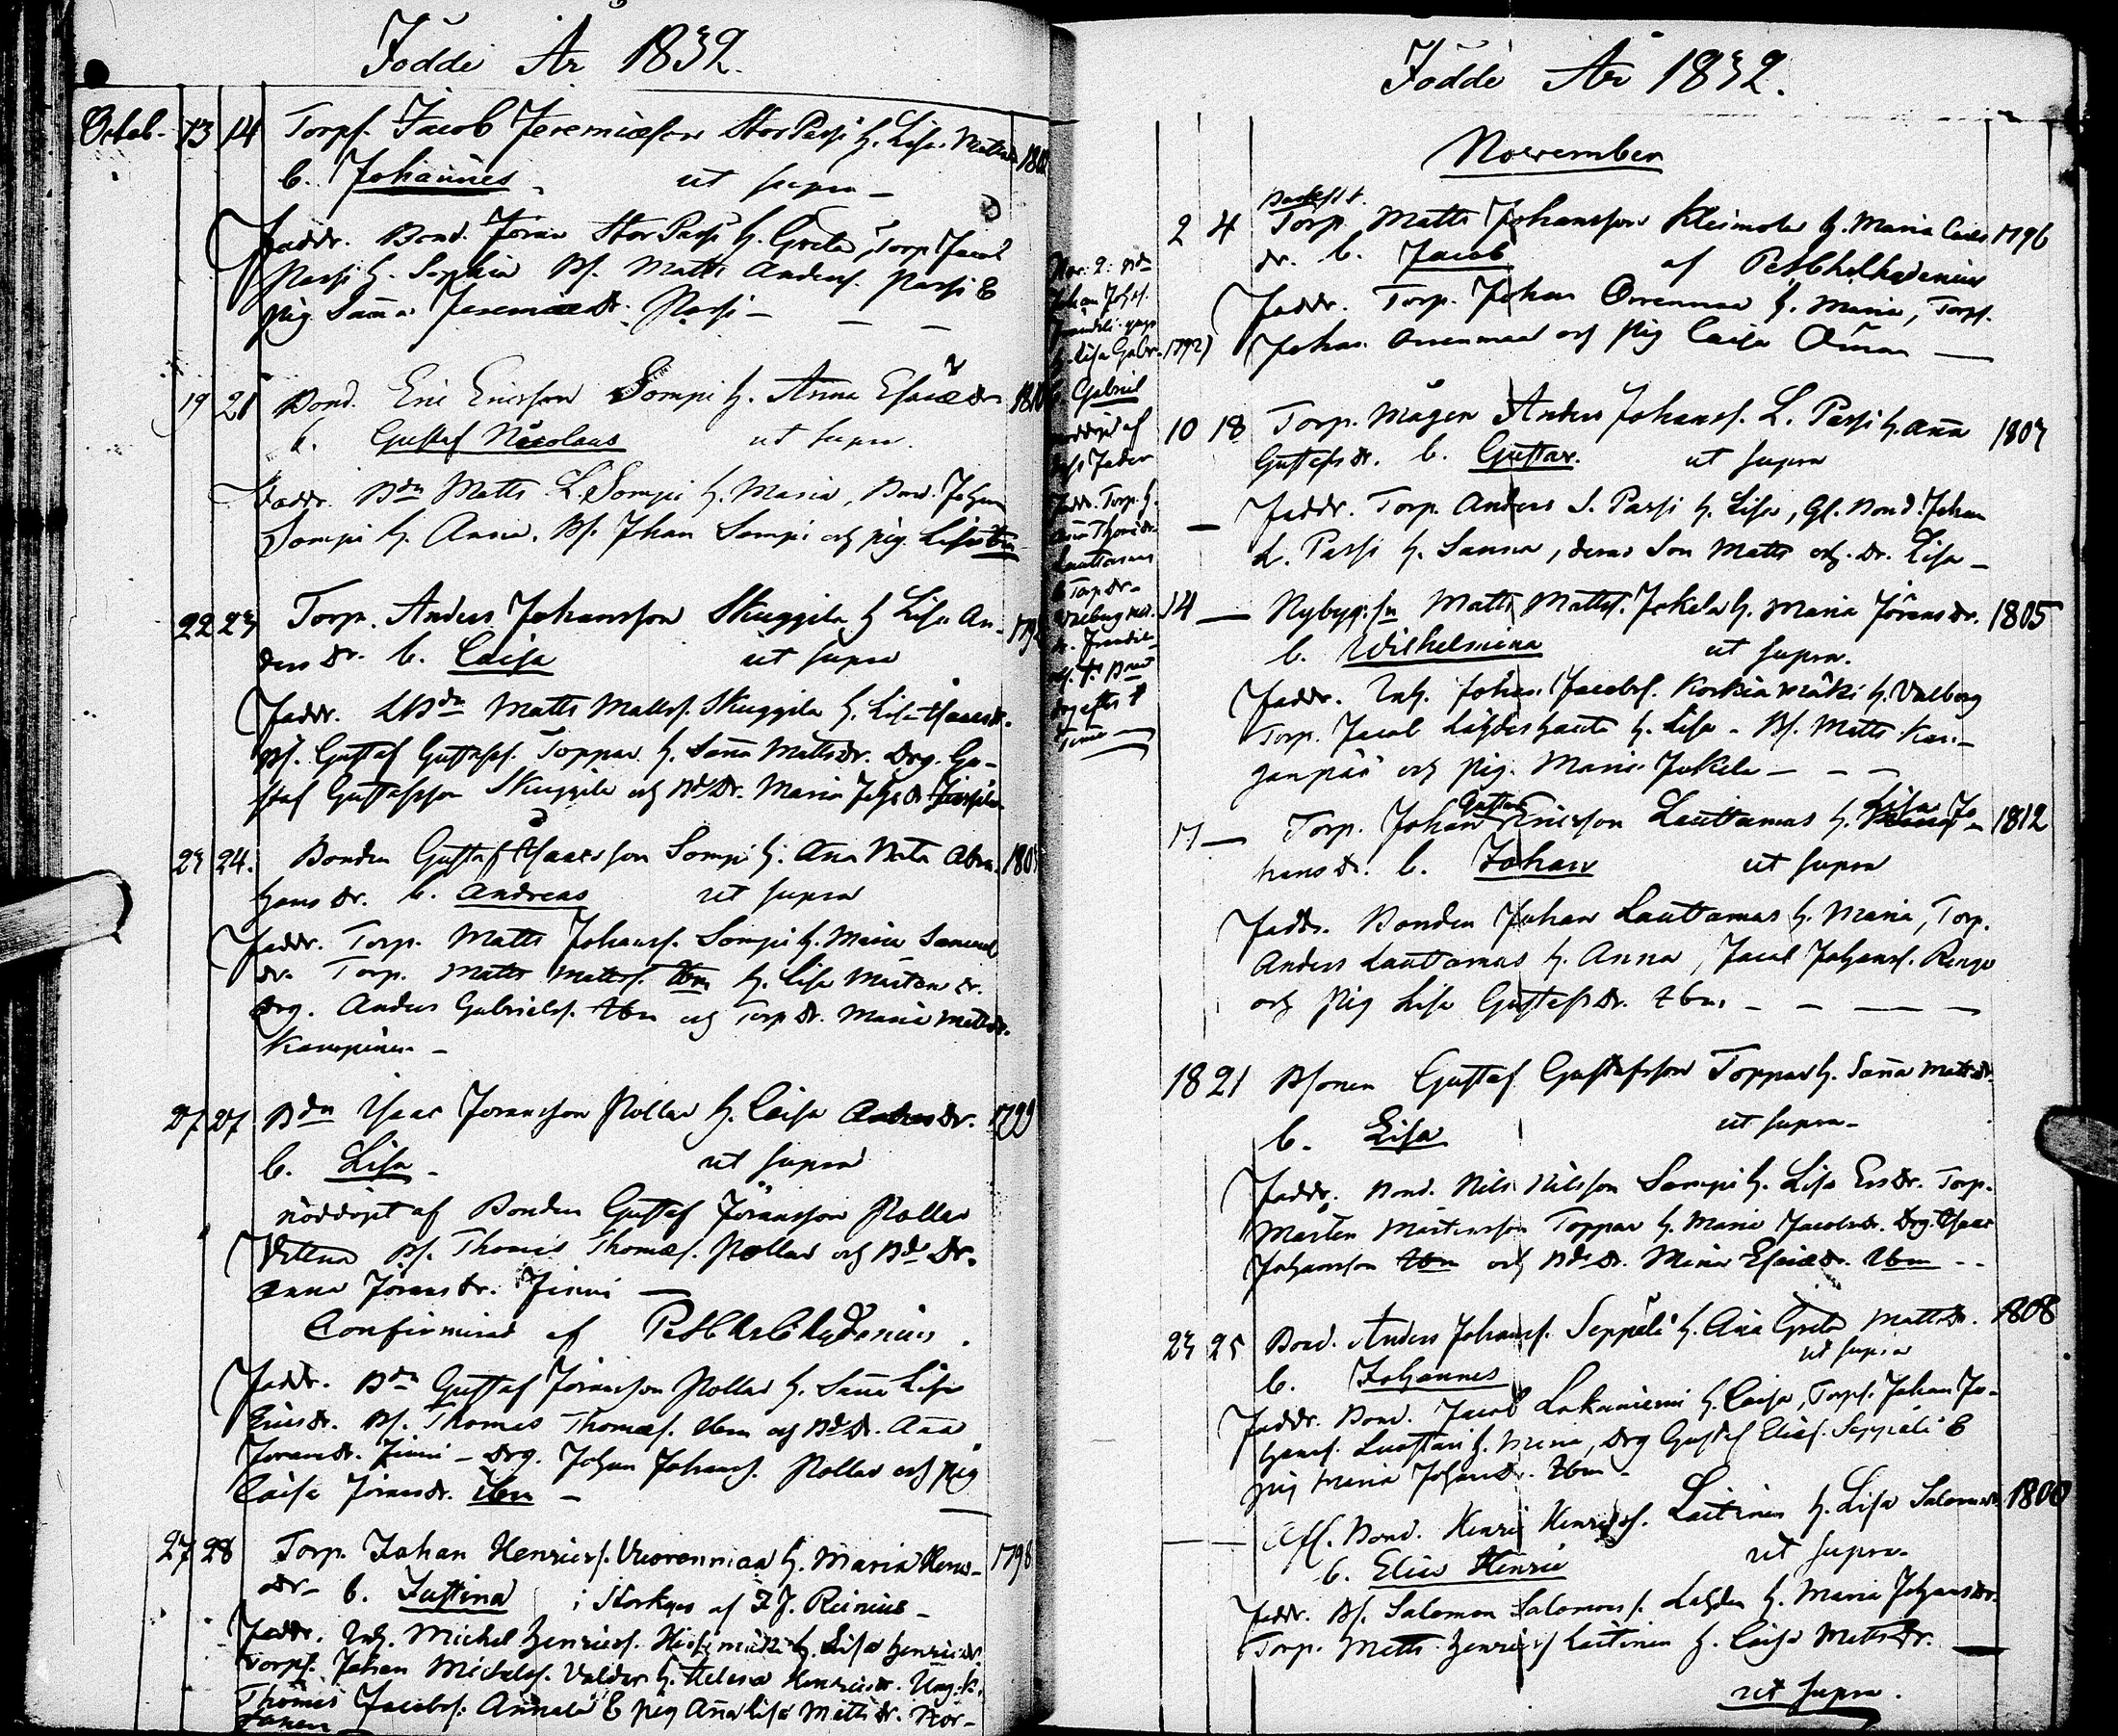 Födde År 1832.
Octob. 13 14 Torpf. Jacob Jeremiæson StorPassi h. Lisa Matts
b. Johannes ut supra
Faddr. Bond. Jöran StorPassi h. Greta, Torp Jacob
Passi h. Sophia Bs. Matts Anders. Passi &
pig Sanna Jeremiædr. Passi
19 21 Bond. Eric Ericsson Sompi h. Anna Esaiædr
b. Gustaf Nicolaus ut supra.
Faddr. Bdn Matts L. Sompi h. Maria, Bond. Johan
Sompi h. Anna. Bs. Johan Sompi och pig. Lisa
22 23 Torp. Anders Johansson Skuggila h Lisa An-
dersdr. b. Caisa ut supra
Faddr. Matts Mattss. Skuggila h. Lisa Isaacsdr.
Bs. Gustaf Gustafss. Toppar h. Sanna Mattsdr. Drg. Gu-
staf Gustafsson Skuggila och Maria
23 24. Bonden Gustaf Isaacsson Sompi h. Anna Beata Abra-
hamsdr. b. Andreas ut supra
Faddr. Torp. Matts Johanss. Sompi h. Maria Samuels
dr. Torp. Matts Mattss. Ibm h. Lisa Mårtensdr.
Drg. Anders Gabrielss. Ibm och Torpdr. Maria Mattsdr.
27 27 Bdn Isaac Jöransson Pollar h. Caisa Andersdr. 1799
b. Lisa ut supra
nöddöpt af Bonden Gustaf Jöransson Pollar
Vittna Bs. Thomas Thomæs. Pollar och Bdsdr.
Anna Jöransdr. Jinni
Confirmerad af
Faddr. Bdn Gustaf Jöransson Pollar h. Sanna Lisa
Ericsdr. Bs. Thomas Thomæs. Ibm och Bdsdr. Anna
Jöransdr. Jinni – Drg. Johan Johanss. Pollar och pig
Caisa Jöransdr. Ibm
27 28 Torp. Johan Henricss. Vuorenmaa h. Maria Henrics- 1798
dr b. Justina i Storkyro af J. Reinius
Faddr. Michel Henricss. h. Lisa Henricsdr.
Torpf. Johan Michelss. Valdar h. Helena Henricsdr.
Thomas Jacobss. Annala & pig Anna Lisa Mattsdr.
Nov. 2. Bdn
Johan Johss.
h. Lisa Gabr. 1792
b. Gabriel
nöddöpt af
Fader
Faddr. Torp. h.
Lauttamus
Födde År 1832.
November
2 4 Torp. Matts Johansson Kleimola h. Maria Carls- 1796
dr. b. Jacob af
Faddr. Torp. Johan Orrenmaa h. Maria, Torpf.
Johan Orrenmaa och pig Caisa
10 18 Torp. Mågen Anders Johanss. L. Passi h. Anna 1807
Gustafsdr. b. Gustav. ut supra
Faddr. Torp. Anders S. Passi h. Lisa, Gl. Bond. Johan
L. Passi h. Sanna, deras Son Matts och dr. Lisa
14 Nybygg.sn Matts Mattss. Jokela h. Maria Jöransdr. 1805
b. Wilhelmina ut supra.
Faddr. Inh. Johan Jacobss. Korkiamäki h. Valborg
Torp. Jacob h. Lisa – Bs. Matts Kan-
ganpää och pig. Maria Jokela
17 Torp. Johan Gustav Ericsson Lauttamus h. Lisa Jo- 1812
hansdr. b. Johan ut supra
Faddr. Bonden Johan Lauttamus h. Maria, Torp.
Anders Lauttamus h. Anna, Jacob Johanss. Rengo
och pig Lisa Gustafsdr. Ibm
18 21 Bsonen Gustaf Gustafsson Toppar h. Sanna Mattsdr.
b. Lisa ut supra
Faddr. Bond. Nils Nilsson Sompi h. Lisa Ersdr. Torp.
Mårten Mårtensson Toppar h. Maria Jacobsdr. Drg. Isaac
Johansson Ibm och Bdsdr. Maria Esaiædr. Ibm
23 25 Bond. Anders Johanss. Seppälä h. Anna Greta Mattsdr. 1808
b. Johannes ut supra
Faddr. Bond. Jacob Lakaniemi h. Caisa, Torpf. Johan Jo-
hanss. Luostari h. Maria, Drg Gustaf Eliæs. Seppälä &
pig Maria Johansdr. Ibm
Aff. Bond. Henric Henricss. Laitinen h. Lisa Salomonsdr. 1800
b. Elias Henric ut supra
Faddr. Bs. Salomon Salomonss. Lahden h. Maria Johansdr.
Torp. Matts Henricss. Laitinen h. Caisa Mattsdr.
ut supra.